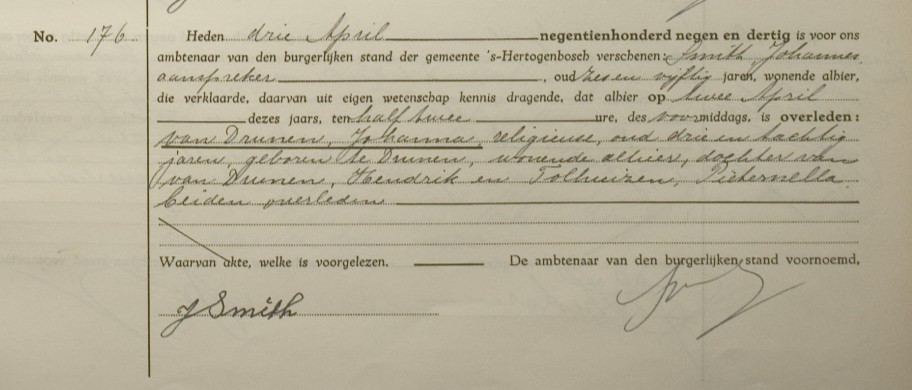 No. 176. Heden drie April negentienhonderd negen en dertig is voor ons
ambtenaar van den burgerlijken stand der gemeente 's-Hertogenbosch verschenen: Smith Johannes
aanspreker, oud zes en vijftig jaren, wonende alhier,
die verklaarde, daarvan uit eigen wetenschap kennis dragende, dat alhier op twee April
dezes jaars, ten half twee ure, des voormiddags, is overleden:
van Drunen, Johanna religieuse, oud drie en tachtig
jaren, geboren te Drunen, wonende alhier, dochter van
van Drunen, Hendrik en Tolhuizen, Pieternella
beiden overleden
Waarvan akte, welke is voorgelezen. De ambtenaar van den burgerlijken stand voornoemd,
J Smith